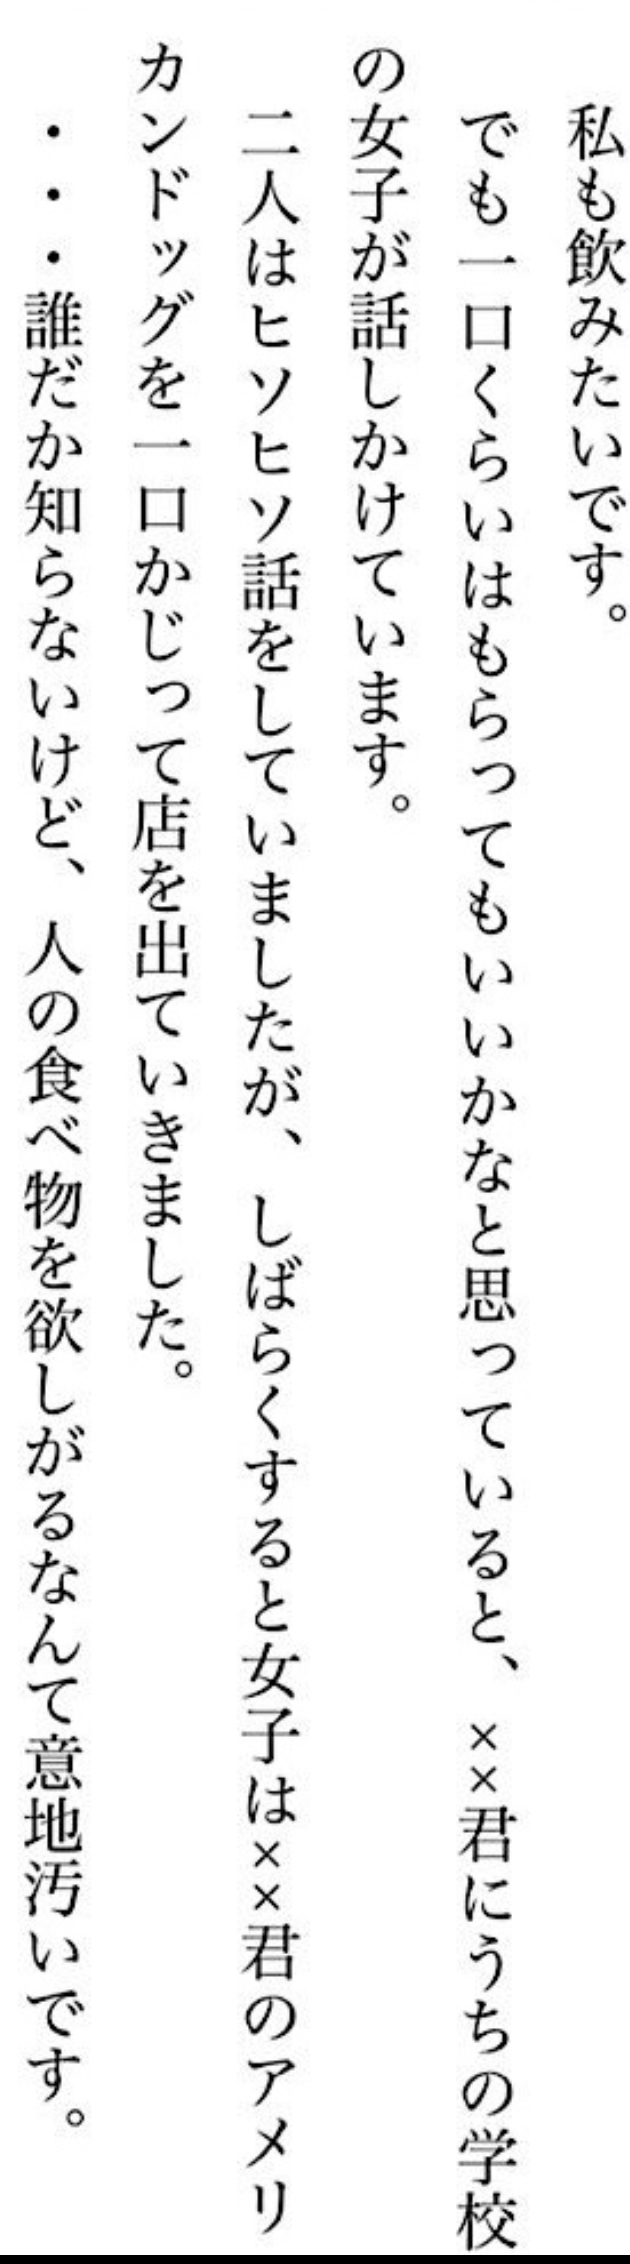 私も飲みたいです。
でも一口くらいはもらってもいいかなと思っていると、××君にうちの学校
の女子が話しかけています。
二人はヒソヒソ話をしていましたが、しばらくすると女子は××君のアメリ
カンドッグを一口かじって店を出ていきました。
・・・誰だか知らないけど、人の食べ物を欲しがるなんて意地汚いです。